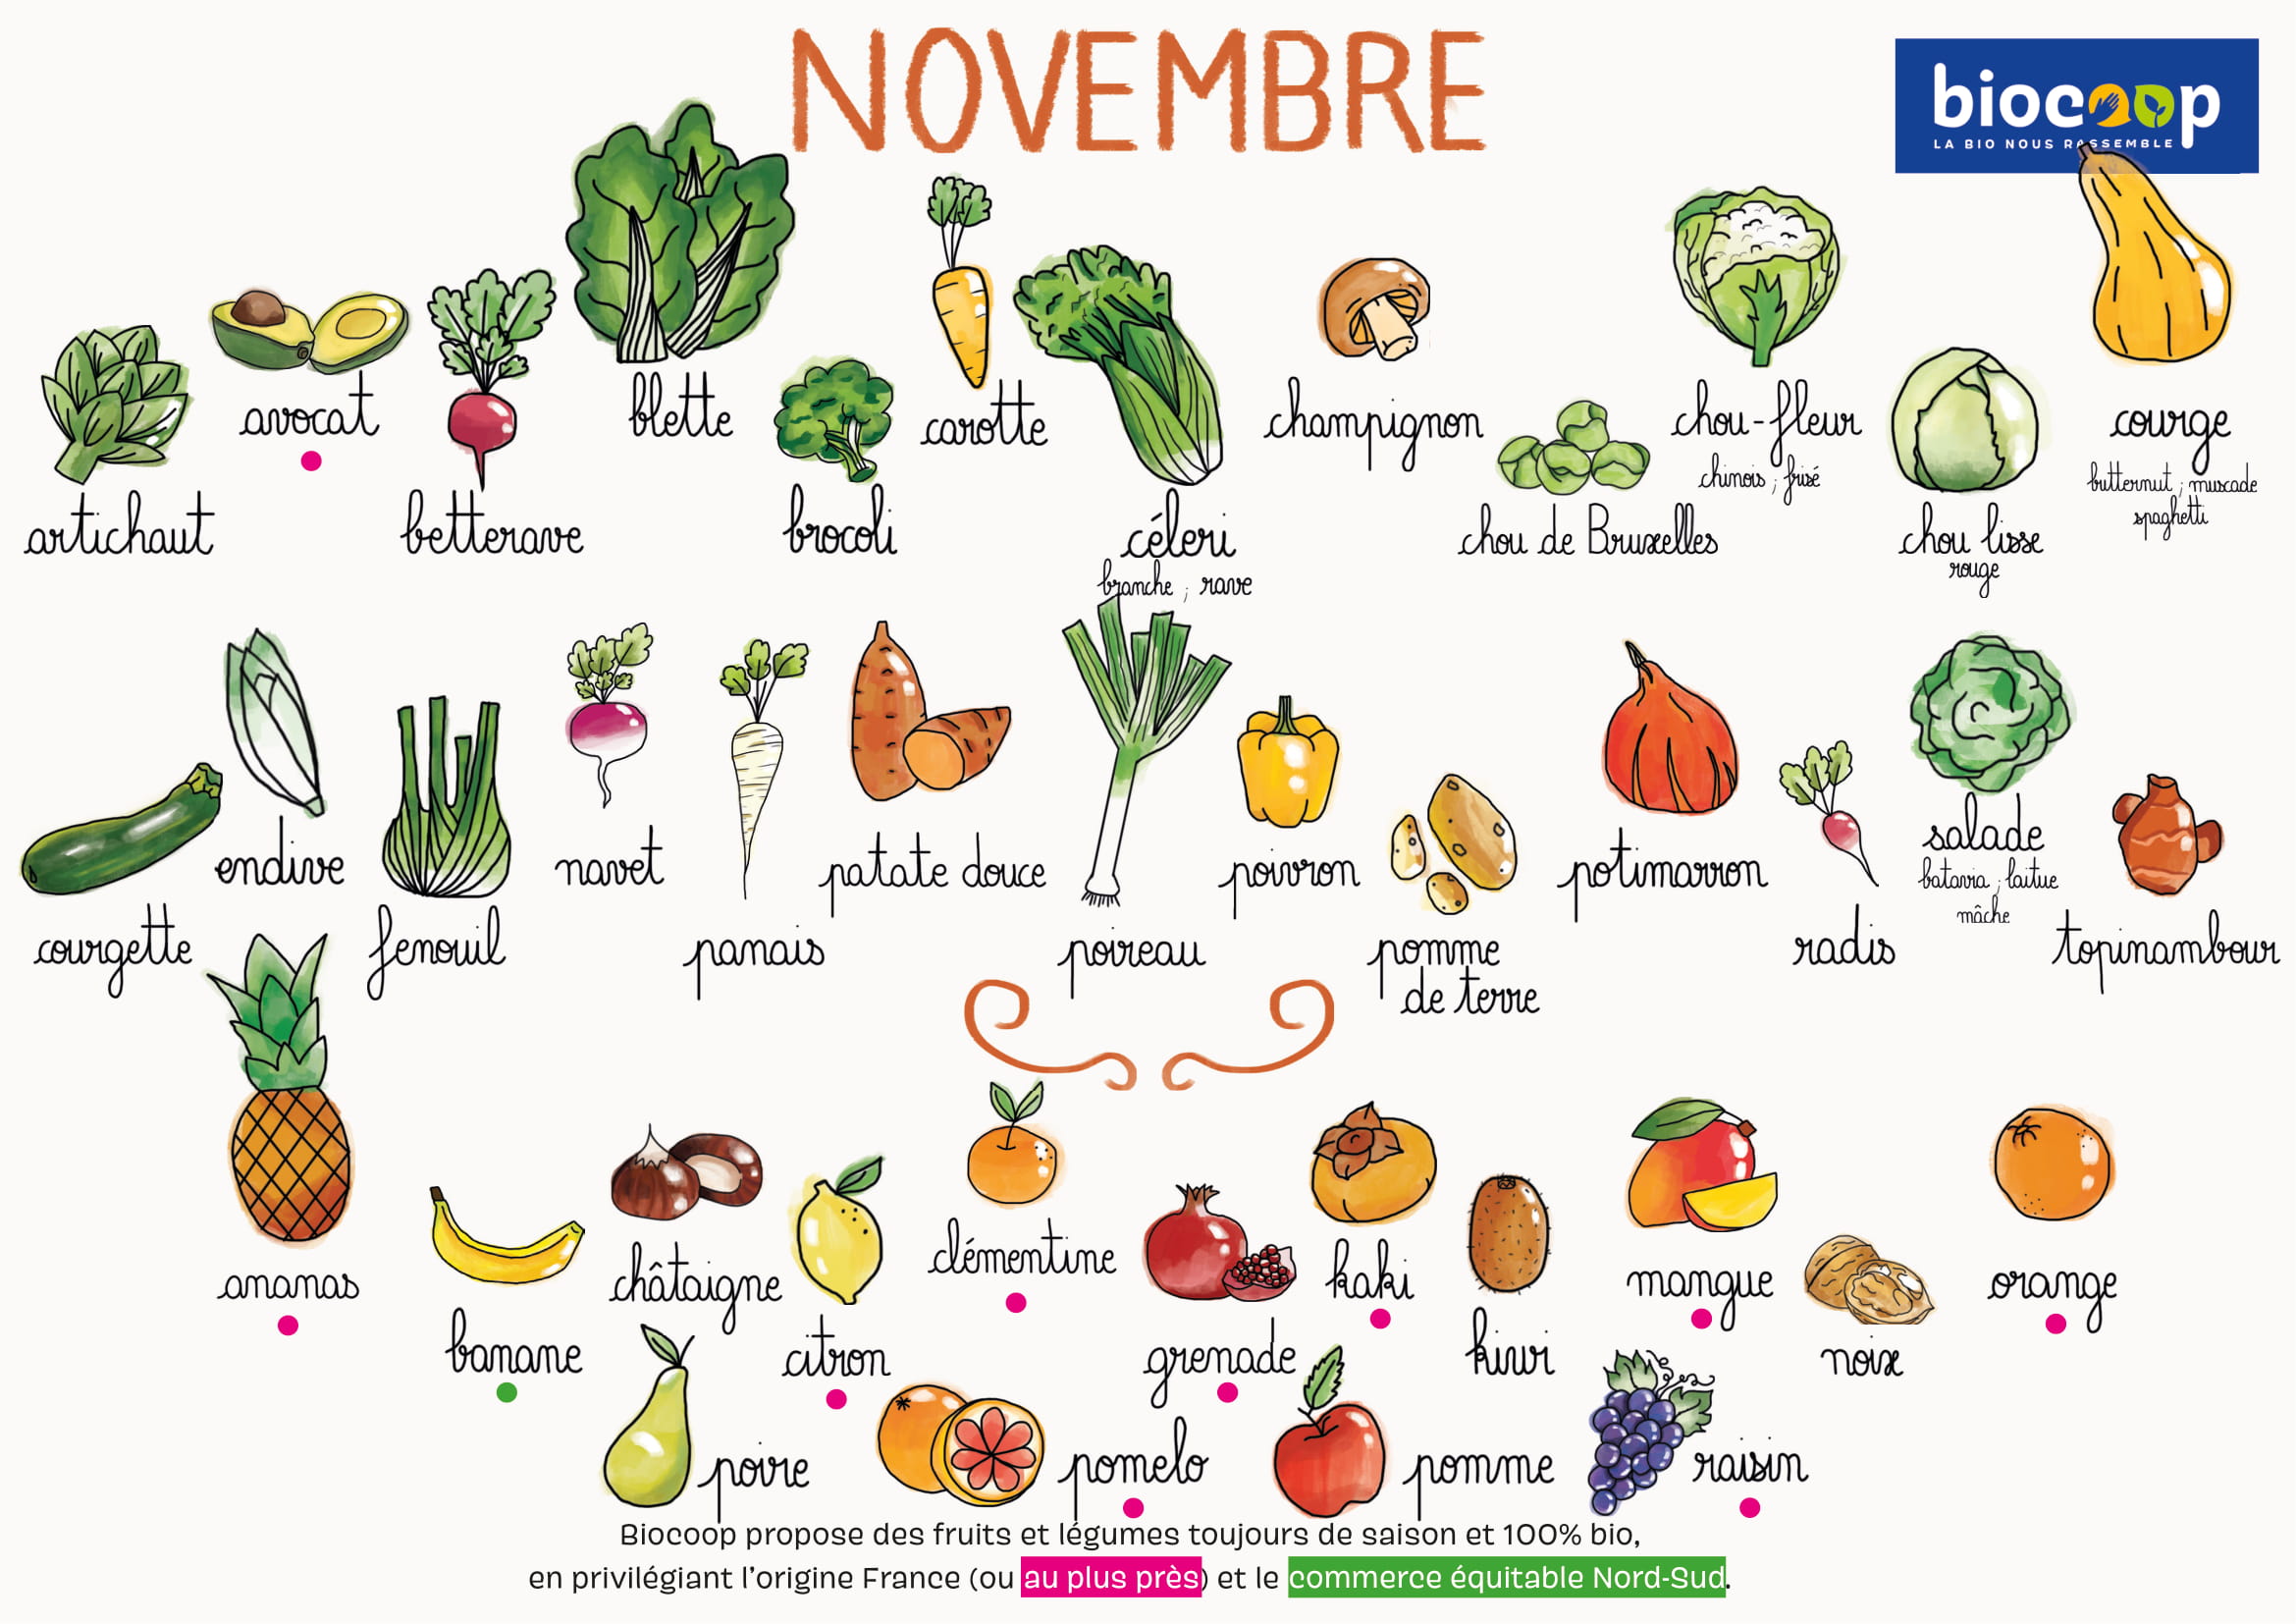 NOVEMBRE
biocoop
LA BIO NOUS RASSEMBLE
artichaut
avocat
betterave
blette
brocoli
carotte
céleri
branche ; rave
champignon
chou de Bruxelles
chou-fleur
chinois ; frisé
chou lisse
rouge
courge
butternut ; muscade
spaghetti
courgette
endive
fenouil
navet
panais
patate douce
poireau
poivron
pomme
de terre
potimarron
radis
salade
batavia ; laitue
mâche
topinambour
ananas
banane
châtaigne
citron
clémentine
grenade
kaki
kiwi
mangue
noix
orange
poire
pomelo
pomme
raisin
Biocoop propose des fruits et légumes toujours de saison et 100% bio,
en privilégiant l'origine France (ou au plus près) et le commerce équitable Nord-Sud.